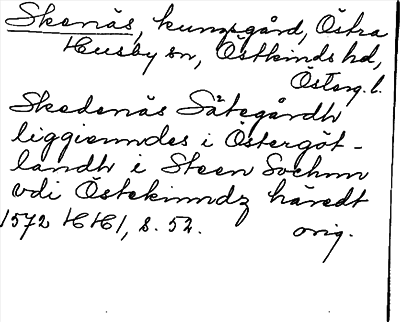 Skenäs, kungsgård, Östra
Husby sn, Östkinds hd,
Österg. l.
Skedenäs Sätegårdh
liggienndes i Östergöt-
landh i Steen Sochnn
vdi Östekinndz häredt
1572 HH1, s. 52. orig.